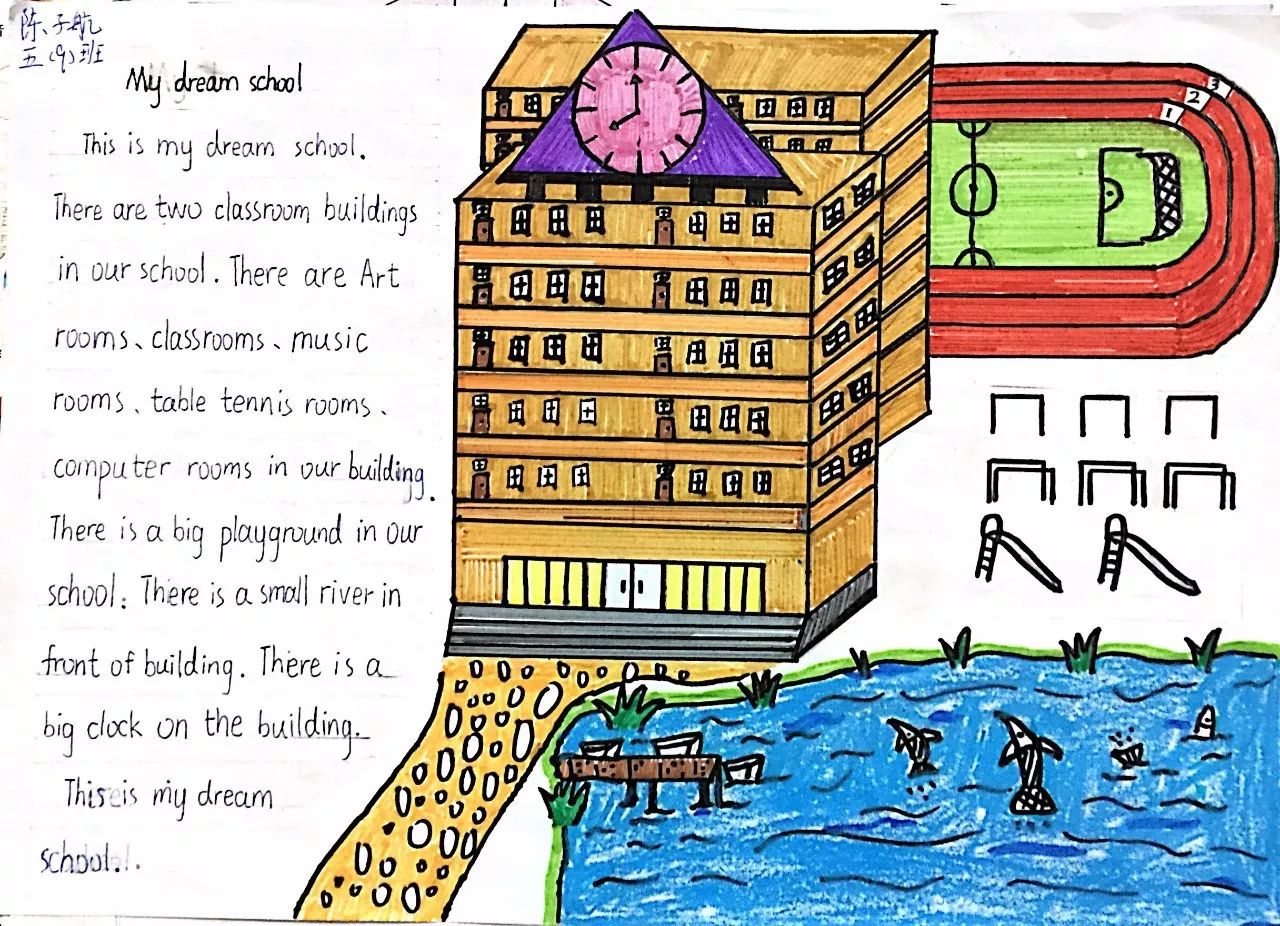 陈子航
五(9)班
My dream school
This is my dream school.
There are two classroom buildings
in our school. There are Art
rooms、classrooms、music
rooms、table tennis rooms、
computer rooms in our building.
There is a big playground in our
school. There is a small river in
front of building. There is a
big clock on the building.
This is my dream
school.
1
2
3